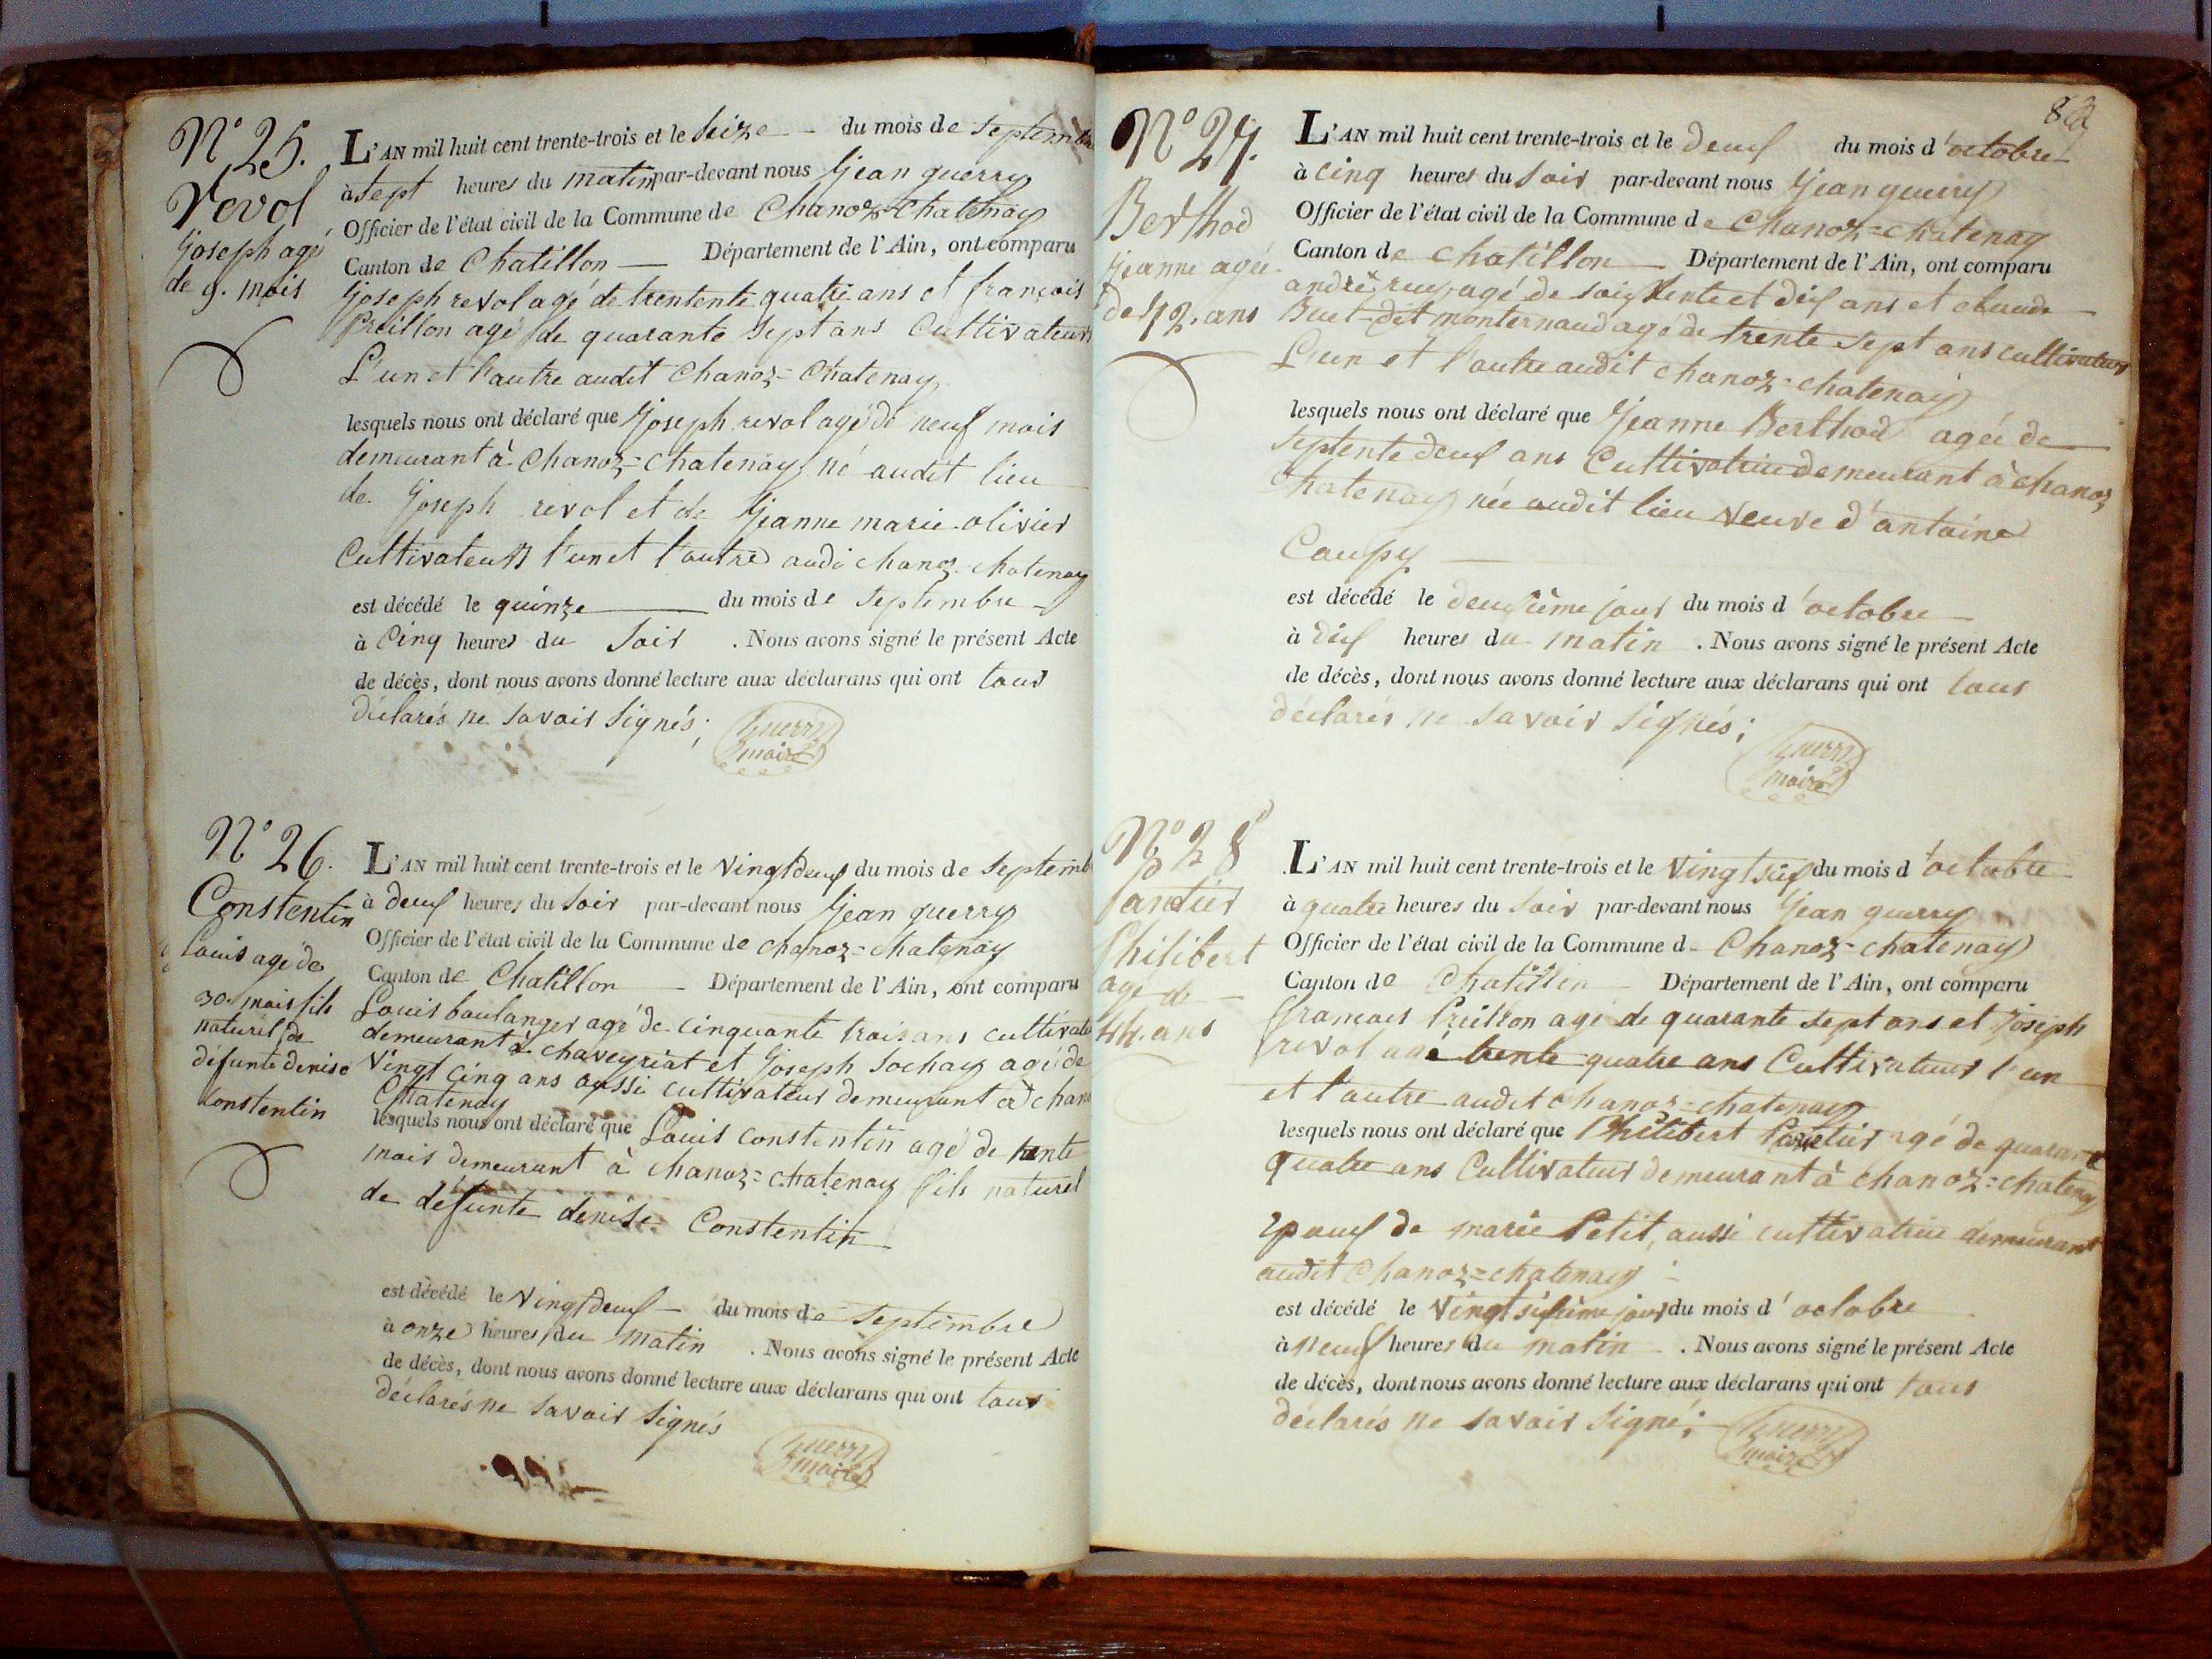 N° 25.
Revol
Joseph agé
de 9. mois
L'AN mil huit cent trente-trois et le Seize du mois de Septembre
à Sept heures du matin par-devant nous Jean guerry
Officier de l'état civil de la Commune de Chanoz-Chatenay
Canton de Chatillon Département de l'Ain, ont comparu
Joseph revol agé de trentente quatre ans et françois
Preillon agé de quarante Sept ans Cultivateurs
L'un et l'autre audit Chanoz=Chatenay
lesquels nous ont déclaré que Joseph revol agé de neuf mois
demeurant à Chanoz=Chatenay né audit lieu
de Joseph revol et de Jeanne marie olivier
Cultivateurs l'un et l'autre audi chanoz-chatenay
est décédé le quinze du mois de Septembre
à Cinq heures du Soir . Nous avons signé le présent Acte
de décès, dont nous avons donné lecture aux déclarans qui ont tous
déclarés ne Savoir Signés;
Guerry
maire
N° 26.
Constentin
Louis agé de
30. mois fils
naturel de
défunte denise
Constentin
L'AN mil huit cent trente-trois et le Vingt deux du mois de Septemb
à deux heures du Soir par-devant nous Jean guerry
Officier de l'état civil de la Commune de chanoz=chatenay
Canton de Chatillon Département de l'Ain, ont comparu
Louis boulanger agé de cinquante trois ans cultivate
demeurant à chaveyriat et Joseph Sochay agé de
Vingt cinq ans aussi cultivateur demeurant à chano
Chatenay
lesquels nous ont déclaré que Louis Constentin agé de trente
mois demeurant à chanoz=chatenay fils naturel
de défunte denise Constentin
est décédé le Vingt deux du mois de Septembre
à onze heures du matin . Nous avons signé le présent Acte
de décès, dont nous avons donné lecture aux déclarans qui ont tous
déclarés ne Savoir Signés
Guerry
maire
N° 27.
Berthod
Jeanne agée
de 72. ans
L'AN mil huit cent trente-trois et le Deux du mois d'octobre
à Cinq heures du Soir par-devant nous Jean guerry
Officier de l'état civil de la Commune de Chanoz=chatenay
Canton de Chatillon Département de l'Ain, ont comparu
andré agé de soixente et dix ans et claude
Buet dit monternaud agé de trente Sept ans cultivateurs
L'un et l'autre audit chanoz-chatenay
lesquels nous ont déclaré que Jeanne Berthod agée de
Septente deux ans Cultivatrice demeurant à chanoz
Chatenay née audit lieu veuve d'antoine
Caupy
est décédé le deuxième jour du mois d'octobre
à dix heures du matin . Nous avons signé le présent Acte
de décès, dont nous avons donné lecture aux déclarans qui ont tous
déclarés ne Savoir Signés;
Guerry
maire
N° 28
Philibert
agé de
44. ans
L'AN mil huit cent trente-trois et le Vingt six du mois d'octobre
à quatre heures du Soir par-devant nous Jean guerry
Officier de l'état civil de la Commune d Chanoz=chatenay
Canton de Chatillon Département de l'Ain, ont comparu
françois Preillon agé de quarante sept ans et Joseph
revol agé trente quatre ans Cultivateurs l'un
et l'autre audit chanoz-chatenay
lesquels nous ont déclaré que Philibert agé de quarante
quatre ans Cultivateur demeurant à chanoz=chatenay
Epoux de marie Petit, aussi cultivatrice demeurant
audit Chanoz=chatenay
est décédé le Vingt sixième jour du mois d'octobre
à neuf heures du matin . Nous avons signé le présent Acte
de décès, dont nous avons donné lecture aux déclarans qui ont tous
déclarés ne Savoir Signé;
Guerry
maire